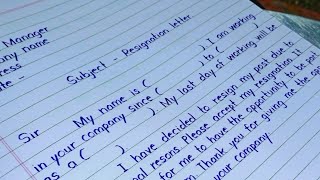 Manager
any name
ress
te -
Subject - Resignation letter
Sir
My name is ( ). I am working
in your company since ( ) to ( )
as a ( ). My last day of working will be
I have decided to resign my post due to
al resons. Please accept my resignation. It
for me to have the opportunity to be part
m. Thank you for giving me the
your company.